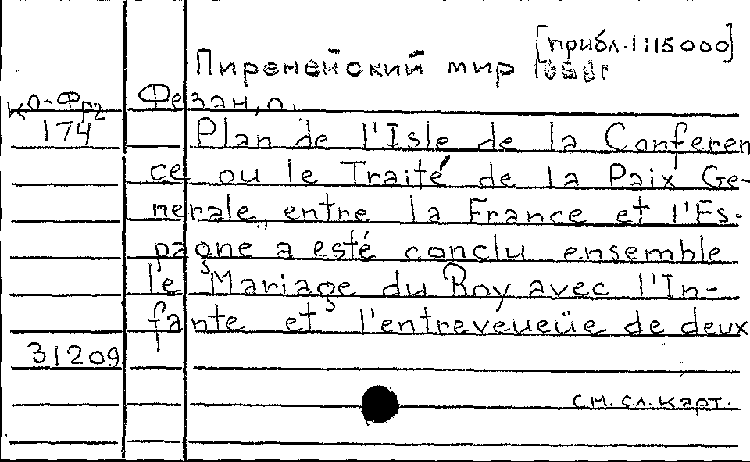 [прибл. 1:115000]
Пиренейский мир
Ко-Фр2 Фезан, о.
174 Plan de l'Isle de la Conferen
ce ou le Traité de la Paix Ge-
nerale entre la France et l'Es-
pagne a esté conclu ensemble
le Mariage du Roy avec l'In-
fante et l'entreveueüe de deux
31209
см. сл. карт.